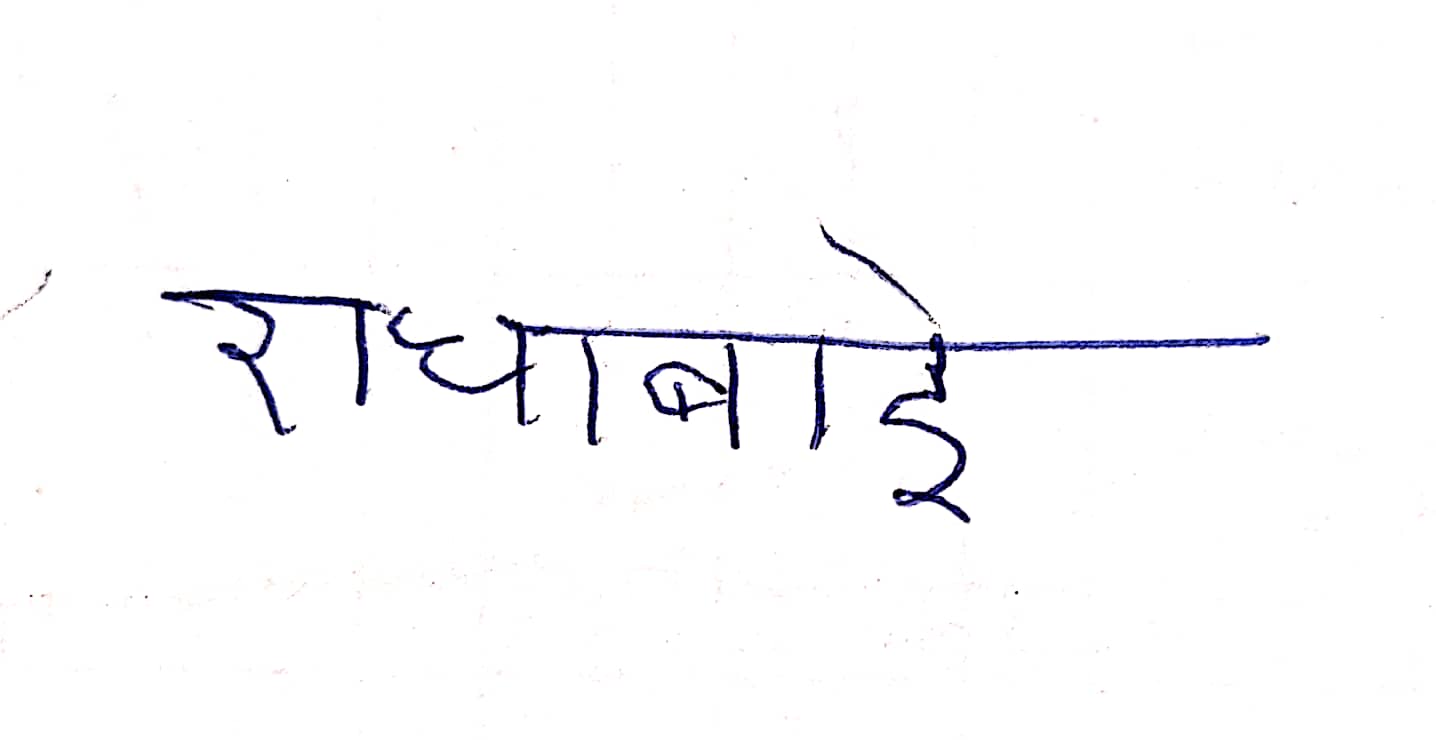 राधाबाई